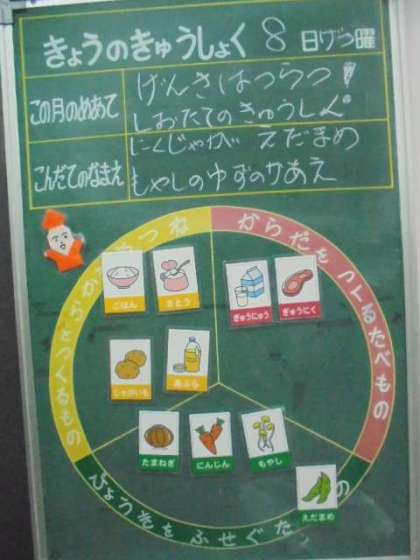 きょうのきゅうしょく 8 日げつ曜
この月のめあて
げんきはつらつ！
しおたての きゅうしょく
こんだてのなまえ
にくじゃが えだまめ
もやしのゆずのかあえ
からだをつくるたべもの
ごはん
さとう
ぎゅうにゅう
ぎゅうにく
じゃがいも
あぶら
たまねぎ
にんじん
もやし
えだまめ
びょうきをふせぐた